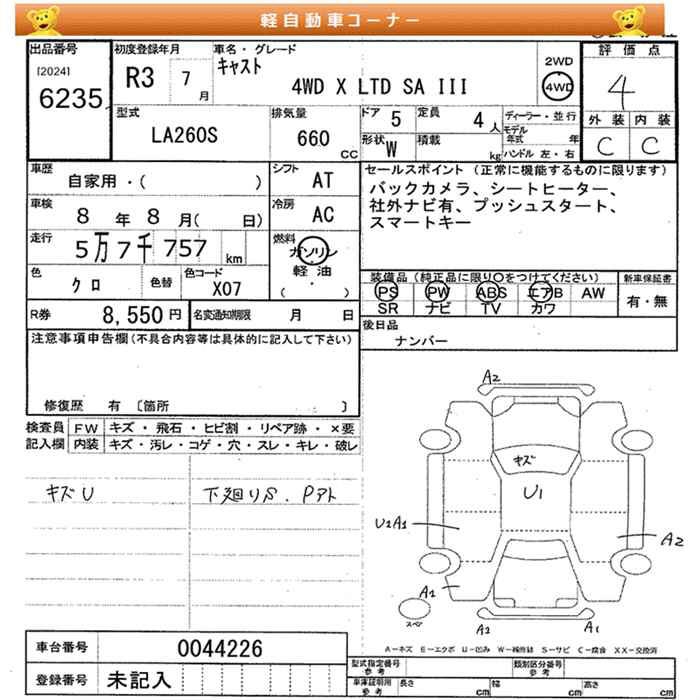 軽自動車コーナー
出品番号
[2024]
6235
初度登録年月
R3 7月
車名・グレード
キャスト
4WD X LTD SA III
2WD
4WD
評価点
4
外装 内装
C C
型式
LA260S
排気量
660 CC
ドア 5
定員 4人
形状 W
積載 kg
ディーラー・並行
モデル年式 年
ハンドル 左・右
車歴
自家用・( )
シフト AT
車検
8年8月( 日)
冷房 AC
走行
5万7千757 km
燃料
ガソリン
軽油
( ・ )
色
クロ
色替
色コード
X07
R券 8,550円
名変通知期限 月 日
セールスポイント(正常に機能するものに限ります)
バックカメラ、シートヒーター、
社外ナビ有、プッシュスタート、
スマートキー
装備品(純正品に限り○をつけてください)
新車保証書
PS PW ABS エアB AW
SR ナビ TV カワ
有・無
後日品
ナンバー
注意事項申告欄(不具合内容等は具体的に記入して下さい)
修復歴 有 〔箇所 〕
検査員記入欄
FW キズ・飛石・ヒビ割・リペア跡・×要
内装 キズ・汚レ・コゲ・穴・スレ・キレ・破レ
キズU
下廻りS.Pアト
A2
キズ
U1
U2A1
A2
A1
スペア
A2
A1
A-キズ E-エクボ U-凹み W-補修跡 S-サビ C-腐食 XX-交換済
車台番号 0044226
登録番号 未記入
型式指定番号
参考
類別区分番号
参考
車庫証明用
参考
長さ cm 幅 cm 高さ cm